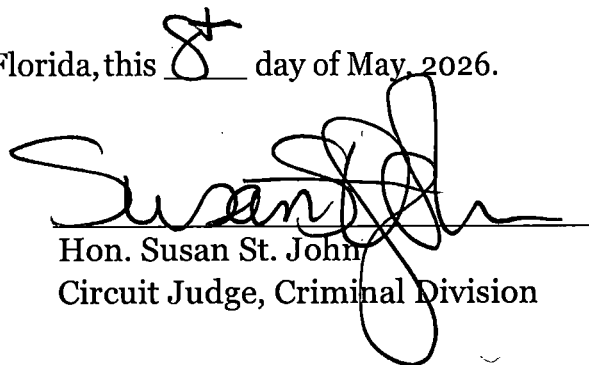 Florida, this 8th day of May, 2026.
Susan St. John
Hon. Susan St. John
Circuit Judge, Criminal Division